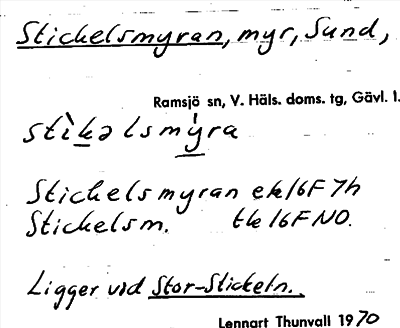 Stickelsmyran, myr, Sund,
Ramsjö sn, V. Häls. doms. tg, Gävl. l.
stìkəlsmy̍ra
Stickelsmyran ek 16F 7h
Stickelsm. tk 16F NO.
Ligger vid Stor-Stickeln.
Lennart Thunvall 1970